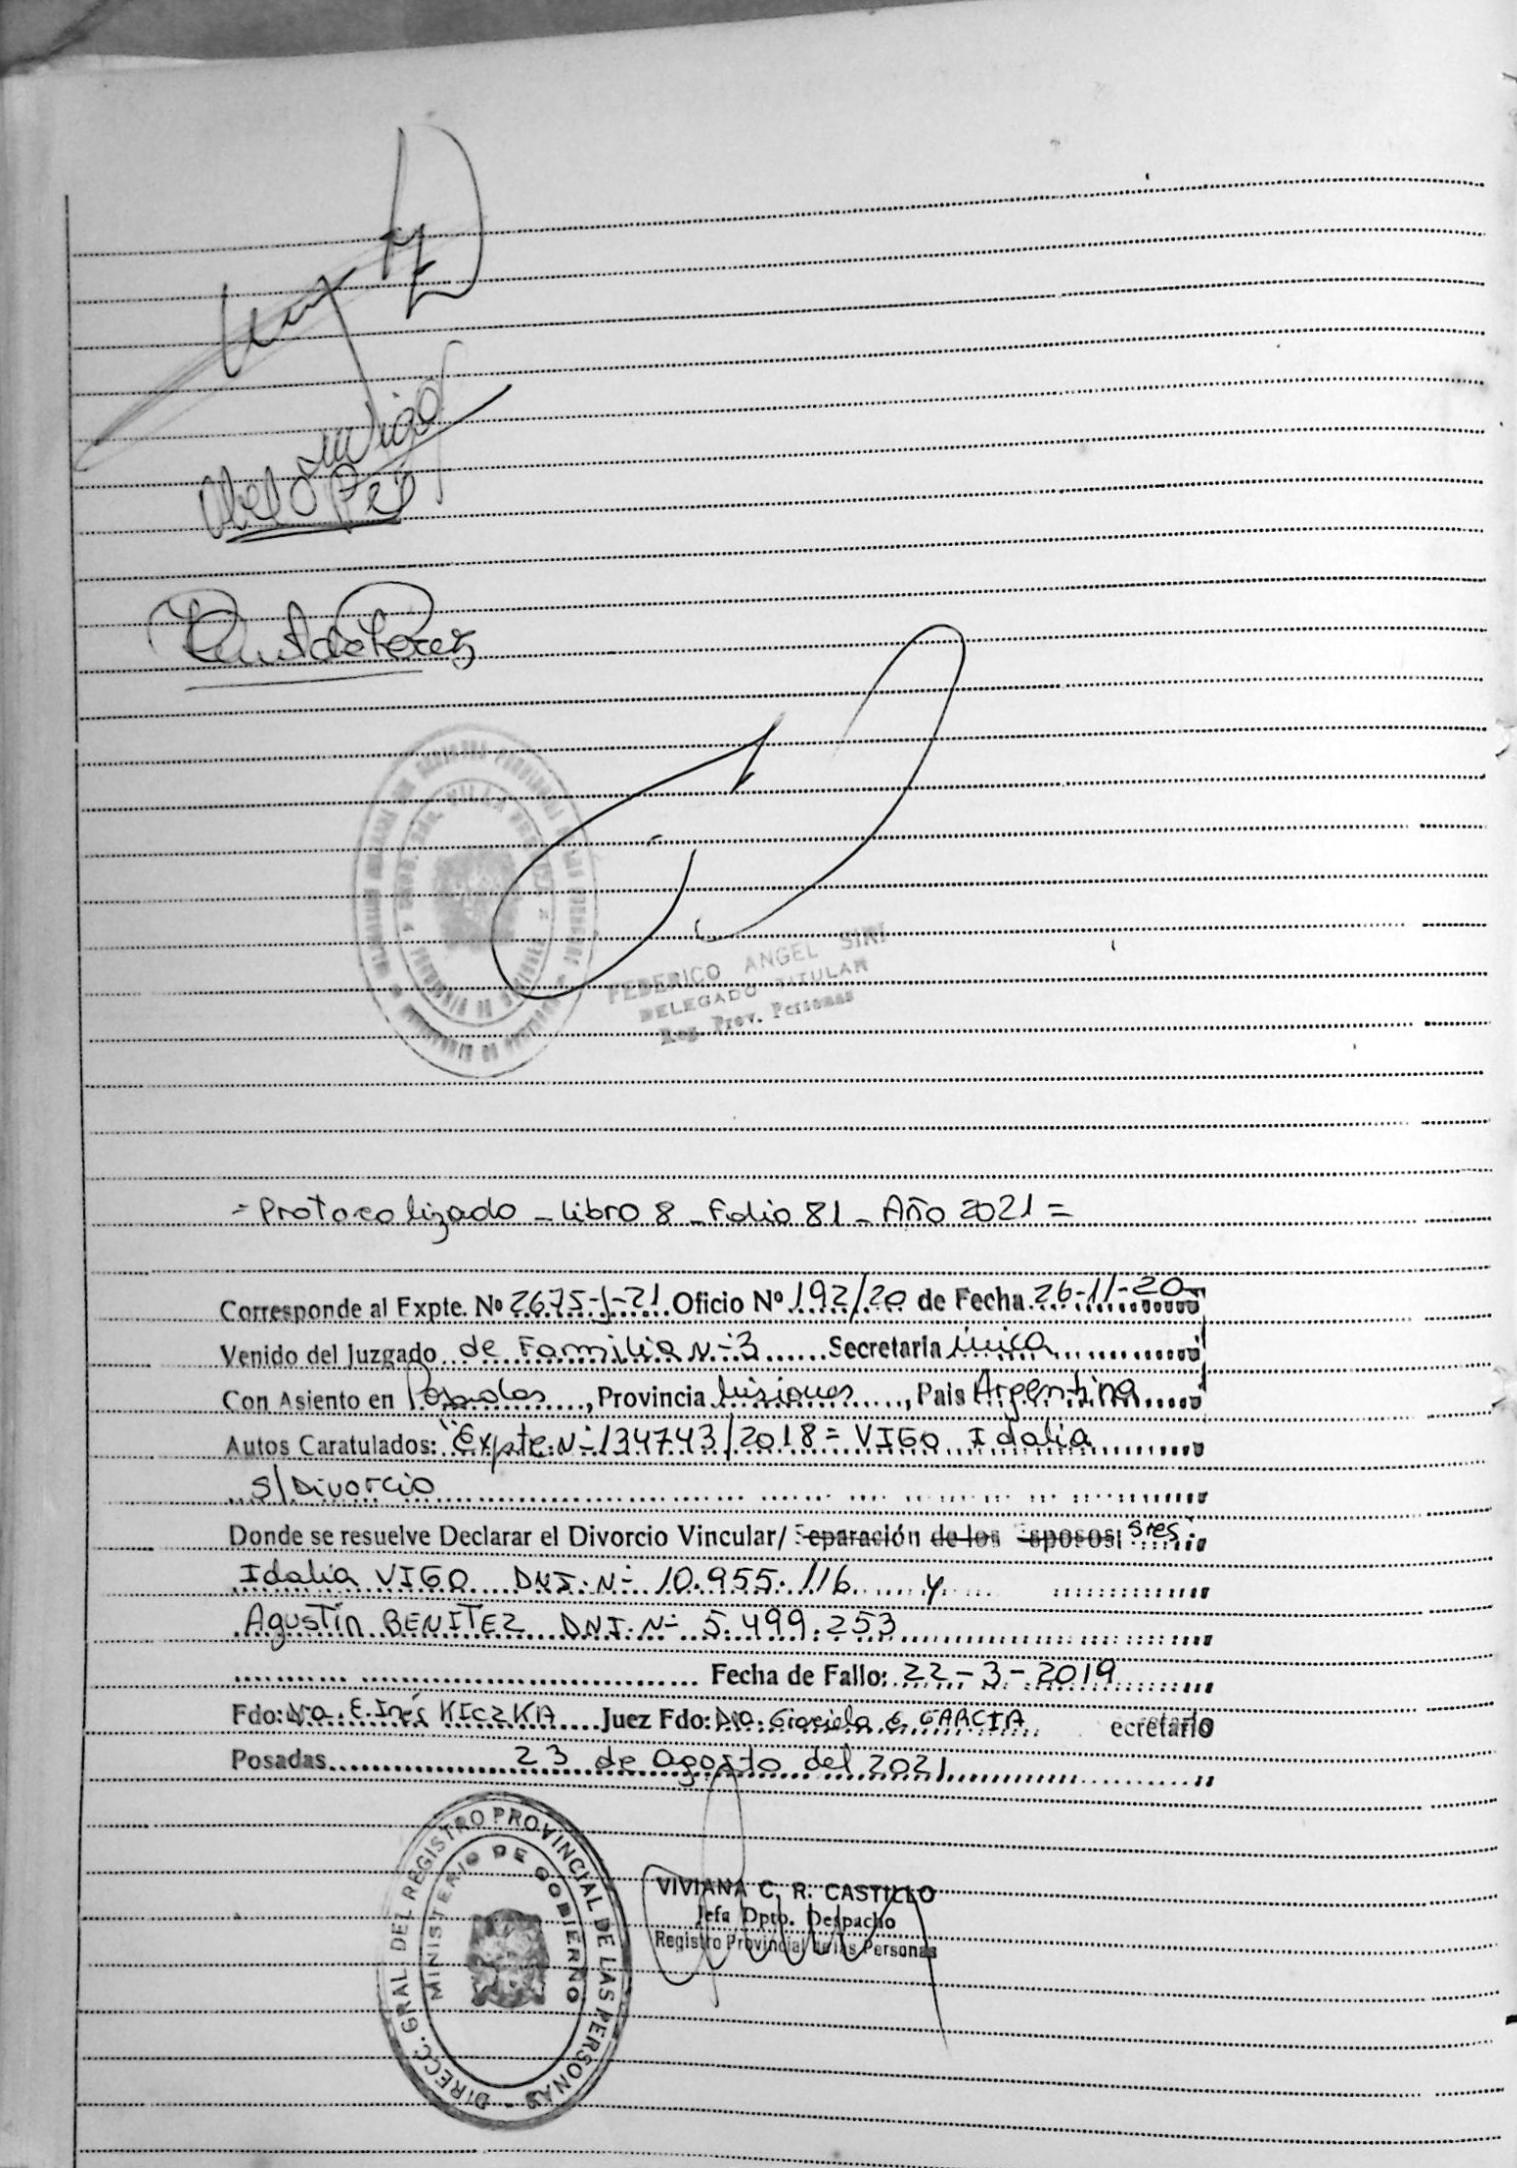 FEDERICO ANGEL SIRI
DELEGADO TITULAR
Reg. Prov. Personas
= Protocolizado - Libro 8 - Folio 81 - Año 2021 =
Corresponde al Expte. Nº 2675-J-21 Oficio Nº 192/20 de Fecha 26-11-20
Venido del Juzgado de Familia Nº 3 Secretaria Única
Con Asiento en Posadas, Provincia Misiones, Pais Argentina
Autos Caratulados: "Expte. Nº 134743/2018 = VIGO Idalia
S/Divorcio
Donde se resuelve Declarar el Divorcio Vincular/ Separación de los Esposos: Sres.
Idalia VIGO DNI. Nº 10.955.116 y
Agustín BENITEZ DNI. Nº 5.499.253
Fecha de Fallo: 22-3-2019
Fdo: Dra. E. Inés KICZKA Juez Fdo: Dra. Graciela GARCIA ecretario
Posadas 23 de agosto del 2021
DIRECC. GRAL. DEL REGISTRO PROVINCIAL DE LAS PERSONAS
MINISTERIO DE GOBIERNO
VIVIANA C. R. CASTILLO
Jefa Dpto. Despacho
Registro Provincial de las Personas